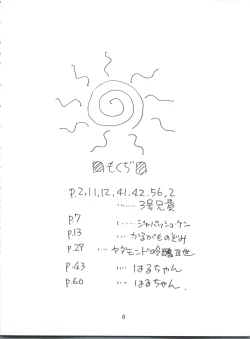 ▨もくぢ▨
p.2,11,12,41.42.56,2
……3号兄貴
p.7 ……ジャパッシュ・ケン
p.13 … かるがものどみ
p.29 … ヤダモンド吟 世
p.43 … はるちゃん
p.60 … はるちゃん.
6